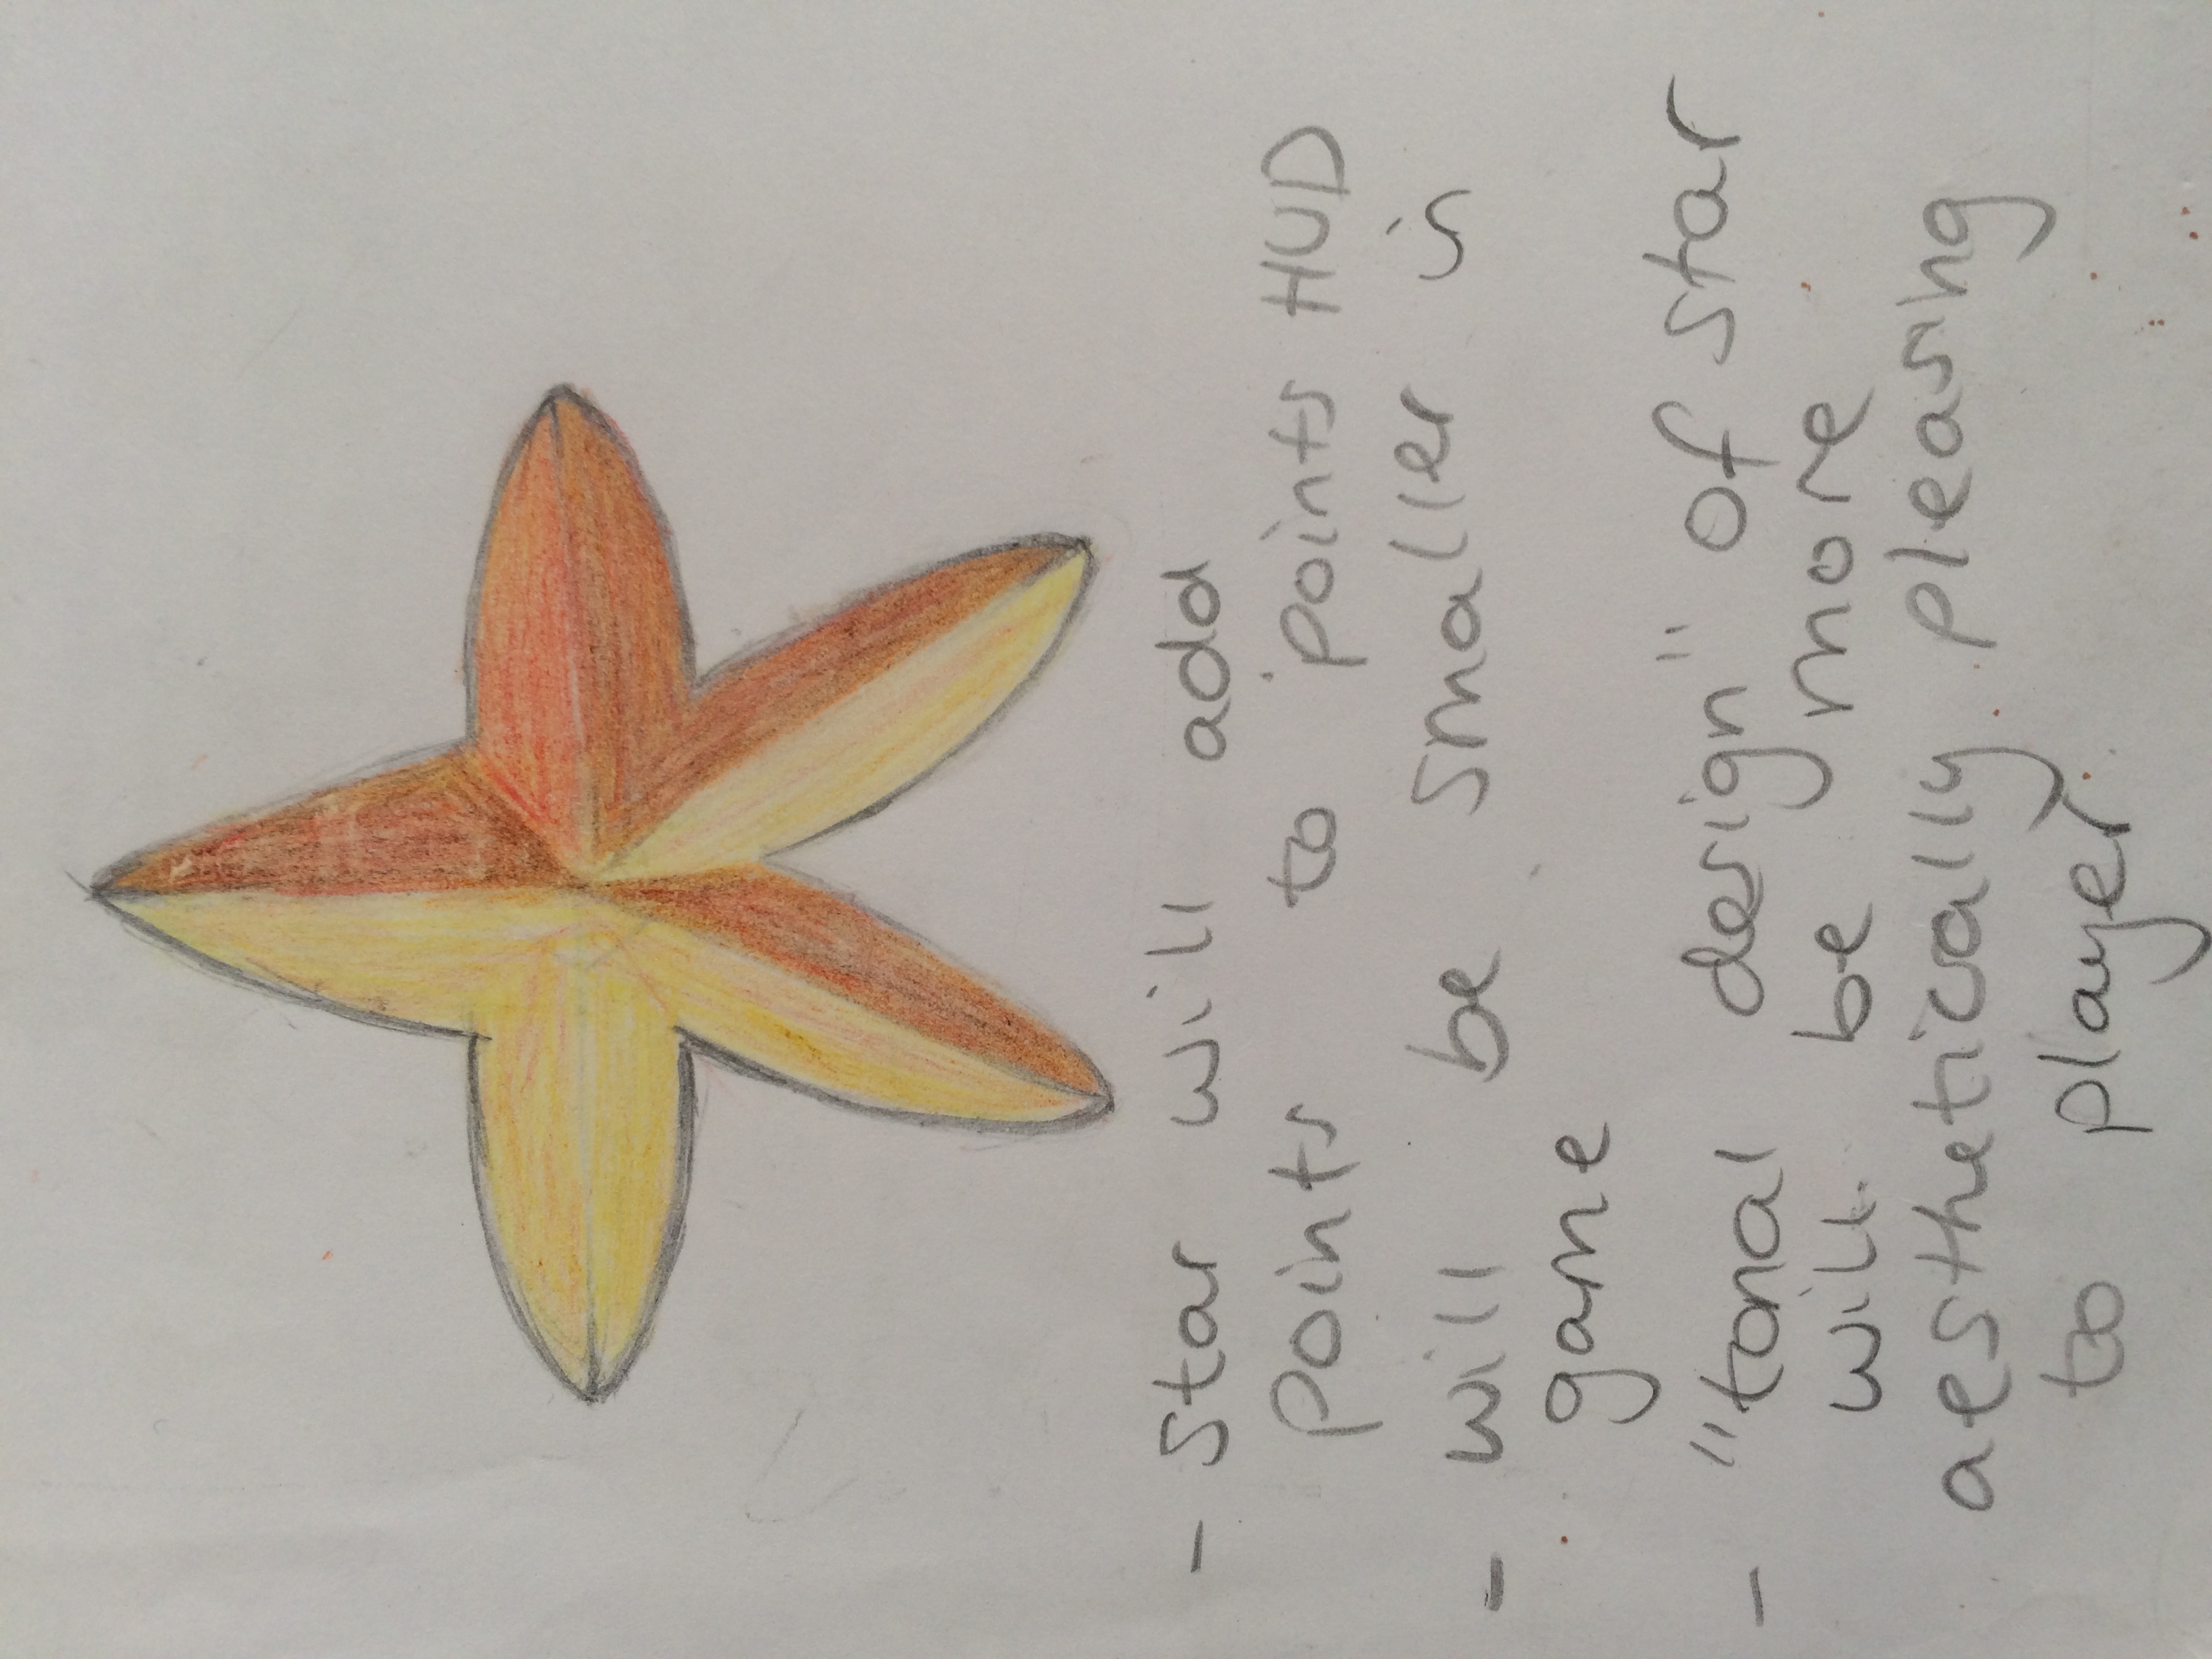 - star will add
points to points HUD
- will be smaller in
game
- "tonal design" of star
will be more
aesthetically pleasing
to player